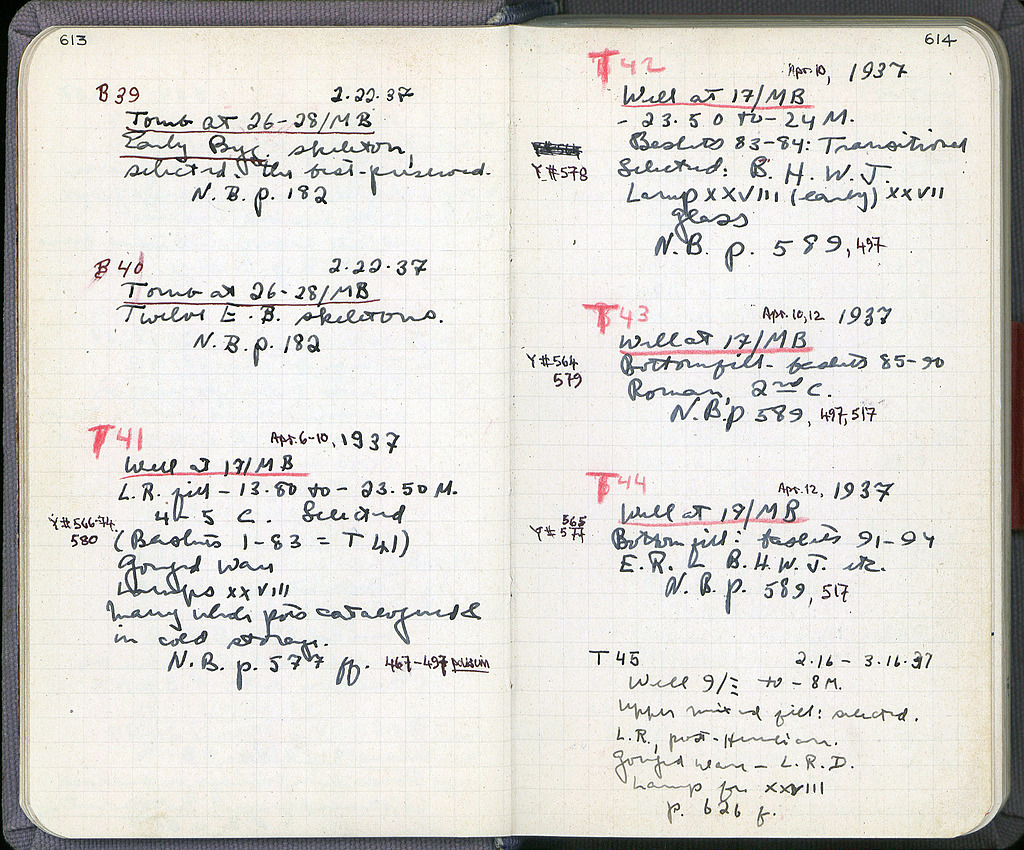 613
B 39 2.22.37
Tomb at 26-28/MB
Early Byz. skeleton,
selected: the best-preserved.
N.B. p. 182
B 40 2.22.37
Tomb at 26-28/MB
Twelve E.B. skeletons.
N.B. p. 182
T 41 Apr. 6-10, 1937
Well at 17/MB
L.R. fill - 13.80 to - 23.50 M.
4-5 C. Selected
Y#566-74,
580 (Baskets 1-83 = T 41)
Gouged Ware
Lamps XXVIII
Many whole pots catalogued &
in cold storage.
N.B. p. 577 ff. 467-497 passim
614
T 42 Apr. 10, 1937
Well at 17/MB
- 23.50 to - 24 M.
Baskets 83-84: Transitional
Y#578 Selected: B. H. W. J.
Lamp XXVIII (early) XXVII
glass
N.B. p. 589, 497
T 43 Apr. 10, 12 1937
Well at 17/MB
Y#564
579 Bottom fill - baskets 85-90
Roman, 2nd C.
N.B. p 589, 497, 517
T 44 Apr. 12, 1937
Well at 19/MB
565
Y#577 Bottom fill: baskets 91-94
E.R. L B.H.W.J. etc.
N.B. p. 589, 517
T 45 2.16 - 3.16.37
Well 9/Ξ to - 8 M.
Upper mixed fill: selected.
L.R., post-Herulian.
Gouged ware - L.R.D.
Lamp fr. XXVIII
p. 626 f.